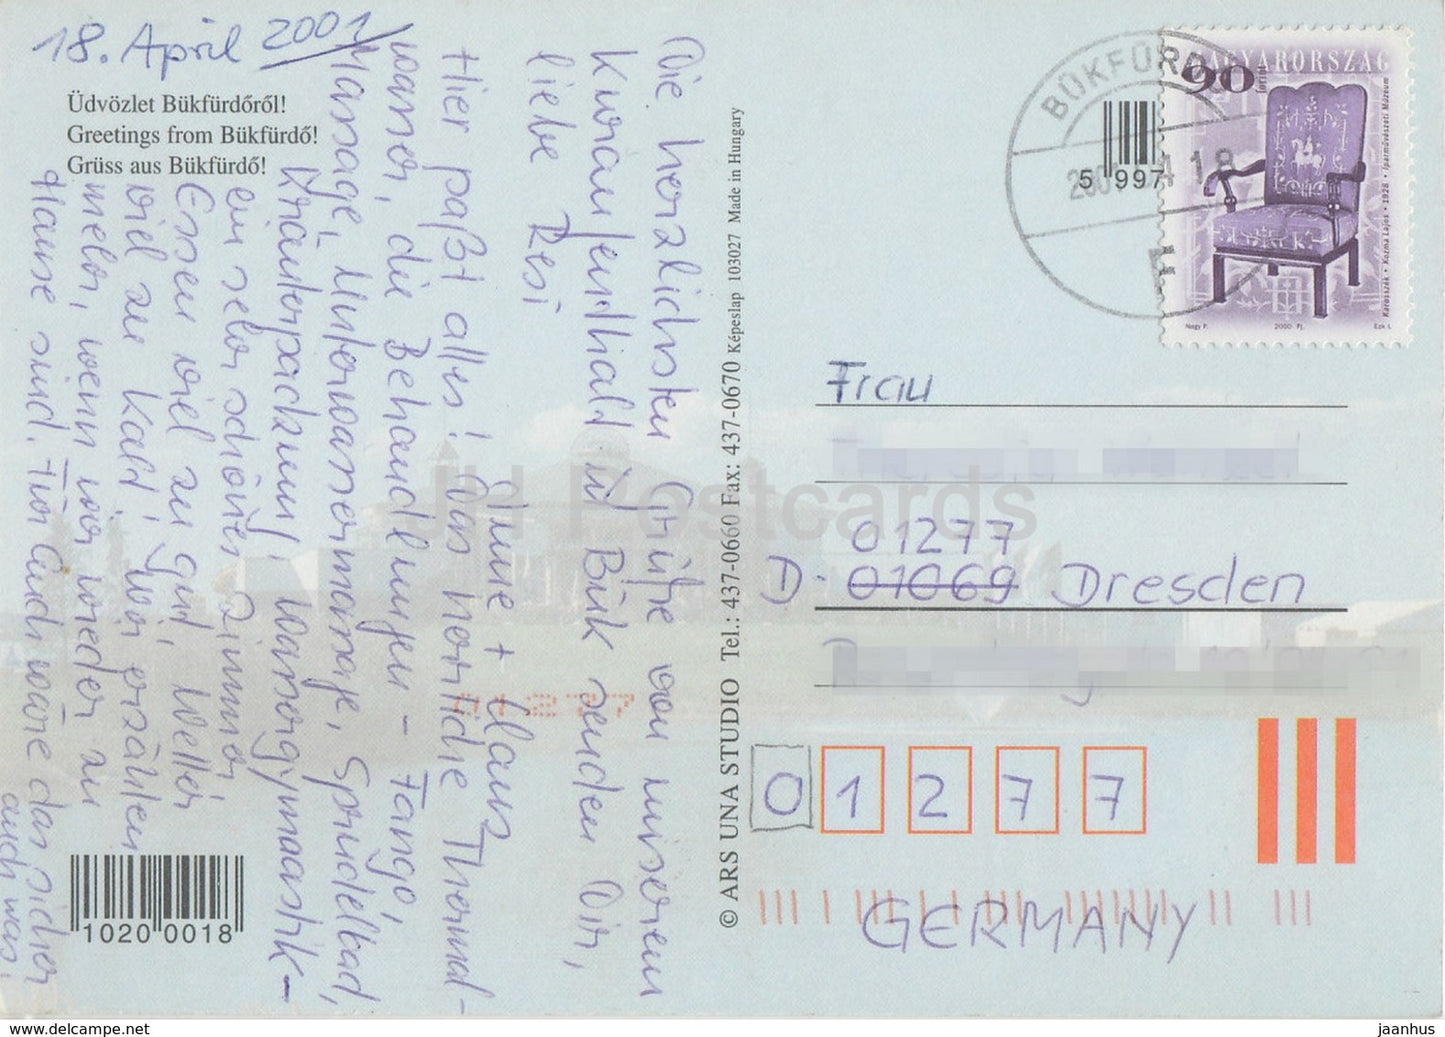 18. April 2001
Üdvözlet Bükfürdőről!
Greetings from Bükfürdő!
Grüss aus Bükfürdő!
Die herzlichsten Grüße von unserem
Kuraufenthalt in Bük senden Dir,
liebe Resi
Anne + Klaus
Hier paßt alles! Das herrliche Thermal-
wasser, die Behandlungen - Fango,
Massage, Unterwassermassage, Sprudelbad,
Kräuterpackung, Wassergymnastik -
ein sehr schönes Zimmer
Essen viel zu gut, Wetter
viel zu kalt! Wir erzählen
mehr, wenn wir wieder zu
Hause sind. Für Euch wäre das sicher
auch was.
10200018
© ARS UNA STUDIO Tel.: 437-0660 Fax: 437-0670 Képeslap 103027 Made in Hungary
BÜKFÜRDŐ
18
5 997
MAGYARORSZÁG
90
forint
Karosszék • Kozma Lajos • 1928 • Iparművészeti Múzeum
Nagy P. 2000 Pj. Ezk I.
Frau
01277
D. 01069 Dresden
0 1 2 7 7
GERMANY
JH Postcards
www.delcampe.net
jaanhus